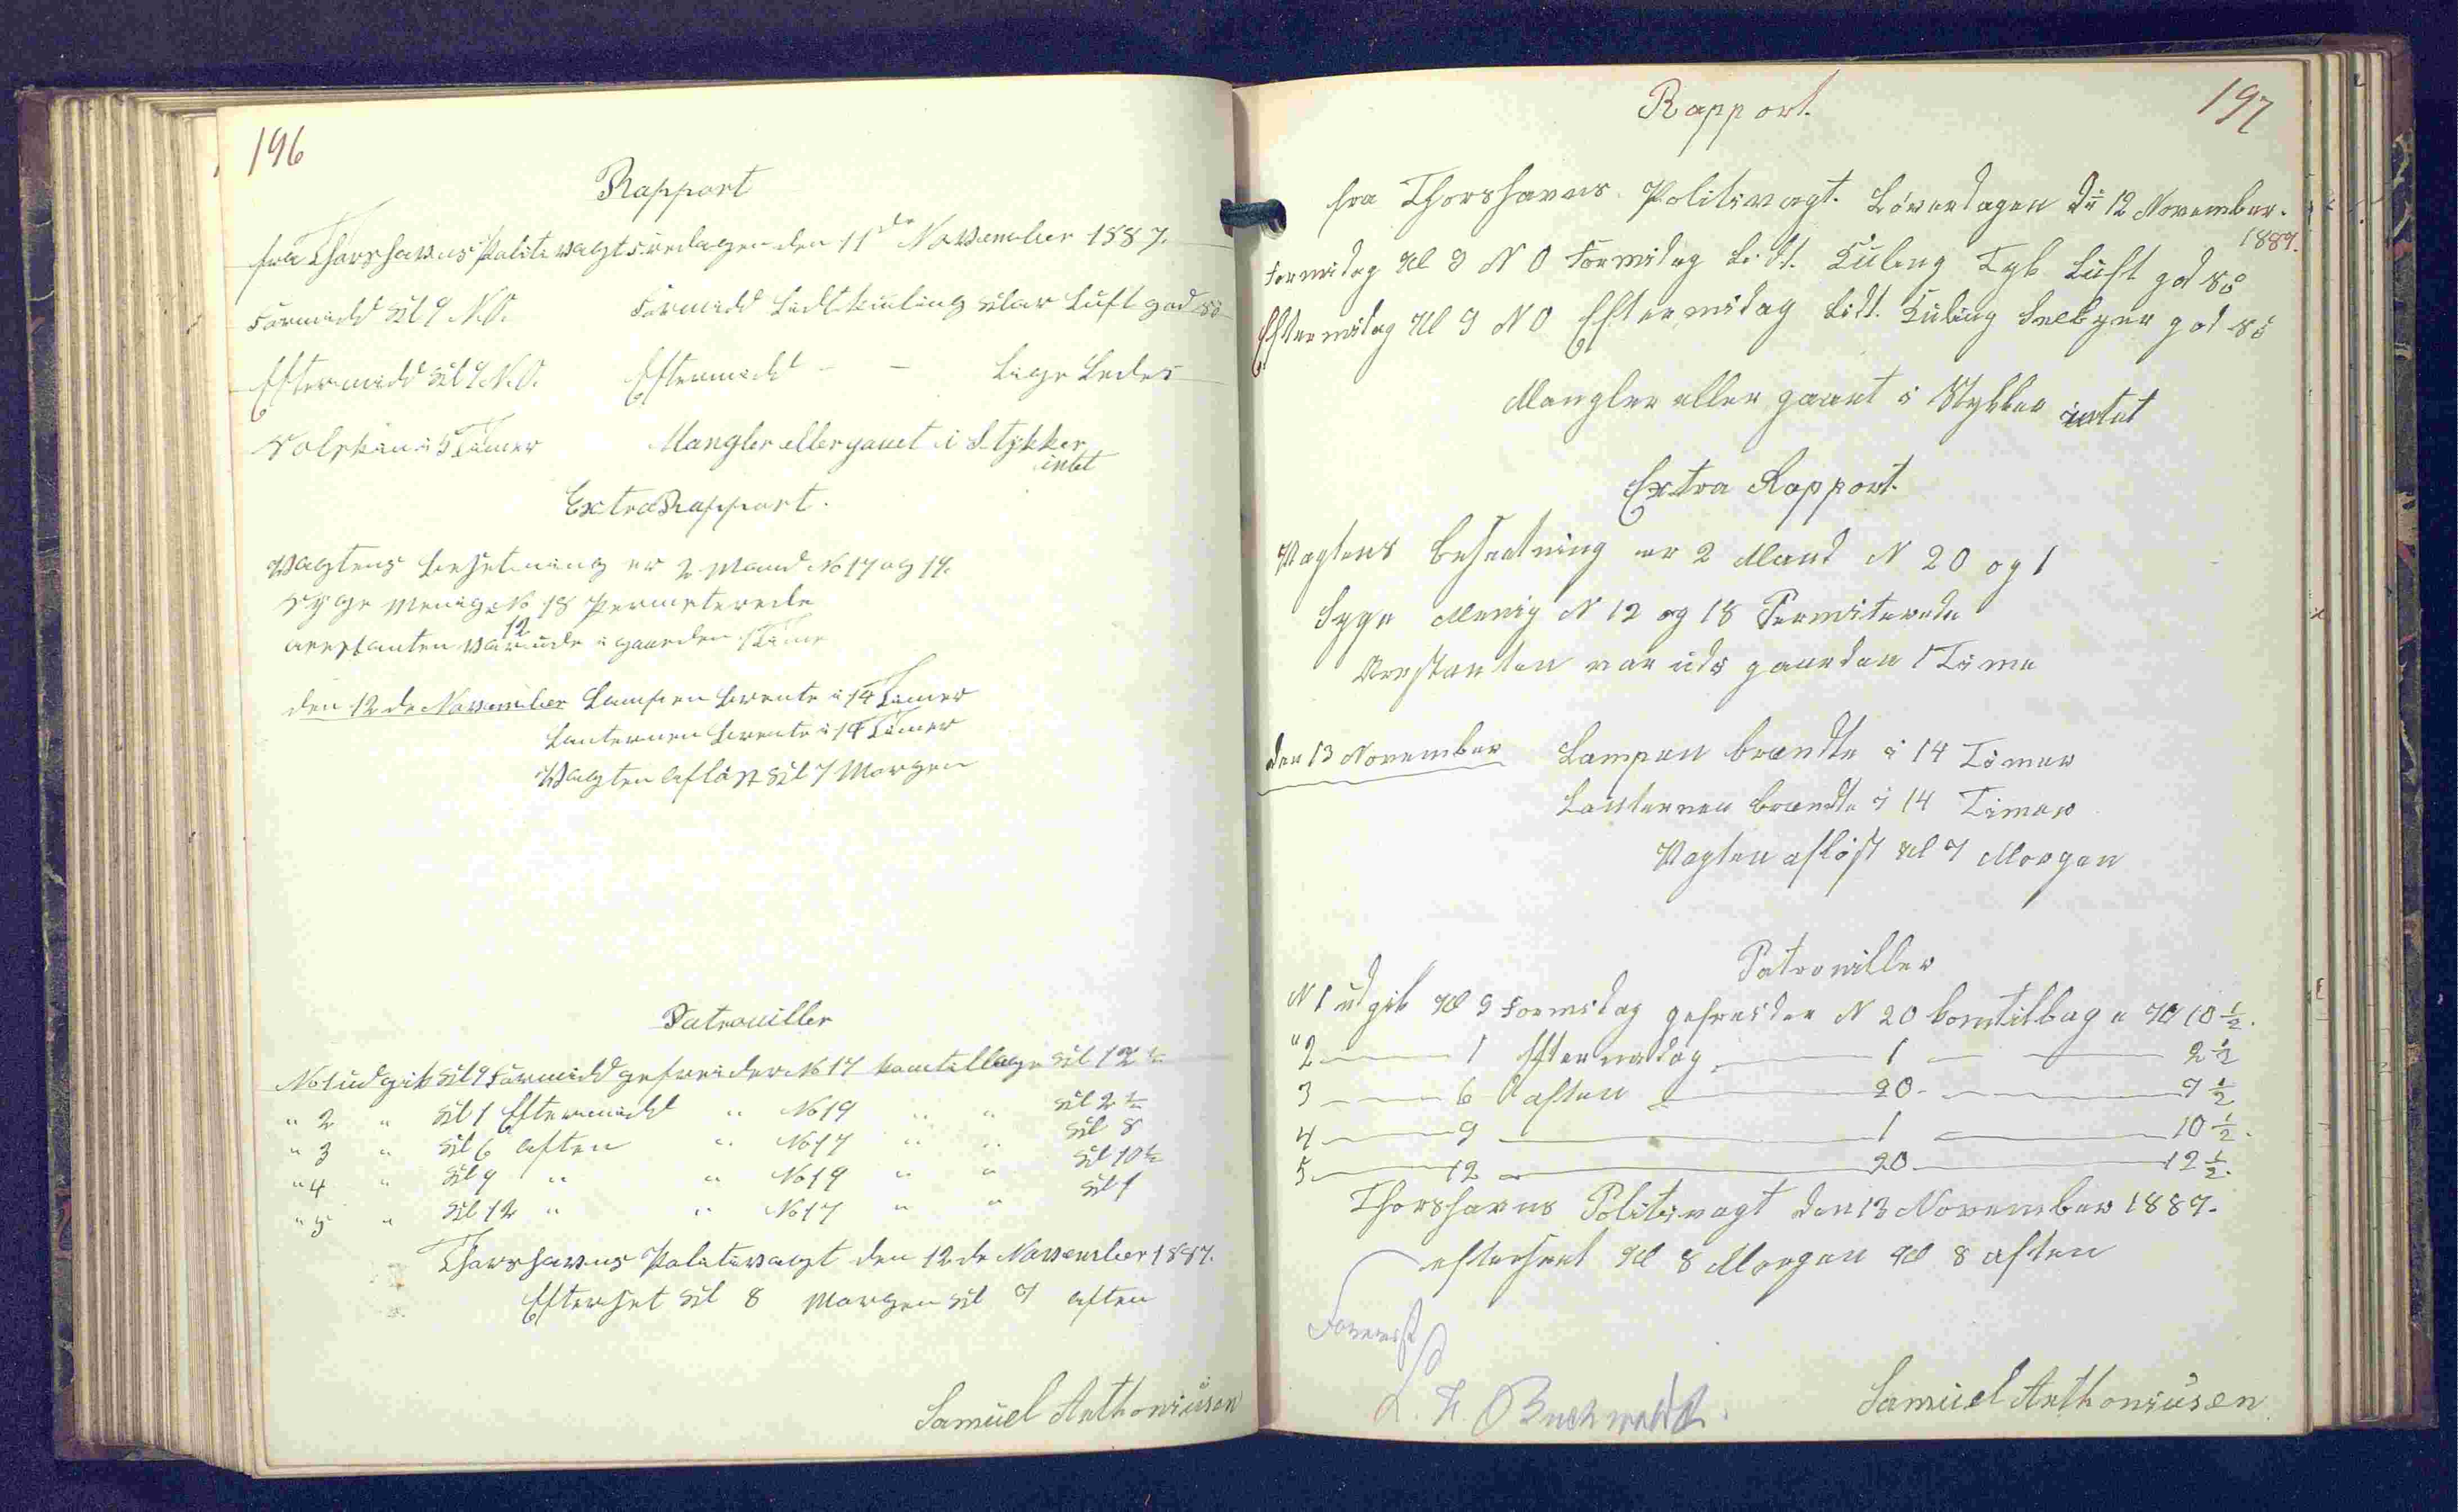 196
Rapport
fra Thorshavns Politivagt Fredagen den 11de November 1887.
Formidd Kl 9 N.O. Formidd Lidt Kuling Klar Luft god Sö
Eftermidd Kl 9 N.O. Eftermidd - - Lige Ledes
Solskin i 5 Timer Mangler eller gaaet i Stykker
intet
Extra Rapport.
Vagtens besetning er 2 Mand No 17 og 19.
Syge Menig No 18 Permeterede
12
arestanten var ude i gaarden 1 Time
den 12 de November Lampen brente i 14 Timer
Lanternen brente i 14 Timer
Vagten aflöst Kl 7 Morgen
Patrouiller
No 1 udgik Kl 9 Formidd gefreider No 17 kom tilbage Kl 12 ½
" 2 " Kl 1 Eftermidd " No 19 " " Kl 2 ½
" 3 " Kl 6 aften " No 17 " " Kl 8
" 4 " Kl 9 " " No 19 " " Kl 10 ½
" 5 " Kl 12 " " No 17 " " Kl 1
Thorshavns Politivagt den 12 de November 1887.
Efterset Kl 8 Morgen Kl 7 aften
Samuel Anthoniüsen
197
Rapport.
fra Thorshavns Politivagt. Löverdagen dn 12 November.
1887.
Formidag Kl 9 N O Formidag Lidt. Kuling Tyk Luft god Sö
Eftermidag Kl 9 N O Eftermidag Lidt. Kuling god Sö
Mangler eller gaaet i Stykker intet
Extra Rapport.
Vagtens besaetning er 2 Mand N 20 og 1
Syge Menig N 12 og 18 Permiterede
Arestanten var uds gaarden 1 Time
den 13 November Lampen brændte i 14 Timer
Lanternen brændte i 14 Timer
Vagten aflöst Kl 7 Morgen
Patrouiller
N 1 udgik Kl 9 Formidag gefreider N 20 kom tilbage Kl 10 ½.
" 2 — 1 Eftermidag — 1 — — 2 ½
3 — 6 aften — 20 — 7 ½
4 — 9 — 1 — 10 ½.
5 — 12 — 20 — 12 ½.
Thorshavns Politivagt den 13 November 1887.
efterseet Kl 8 Morgen Kl 8 aften
Forevist
Buchwaldt.
Samuel Anthoniüsen